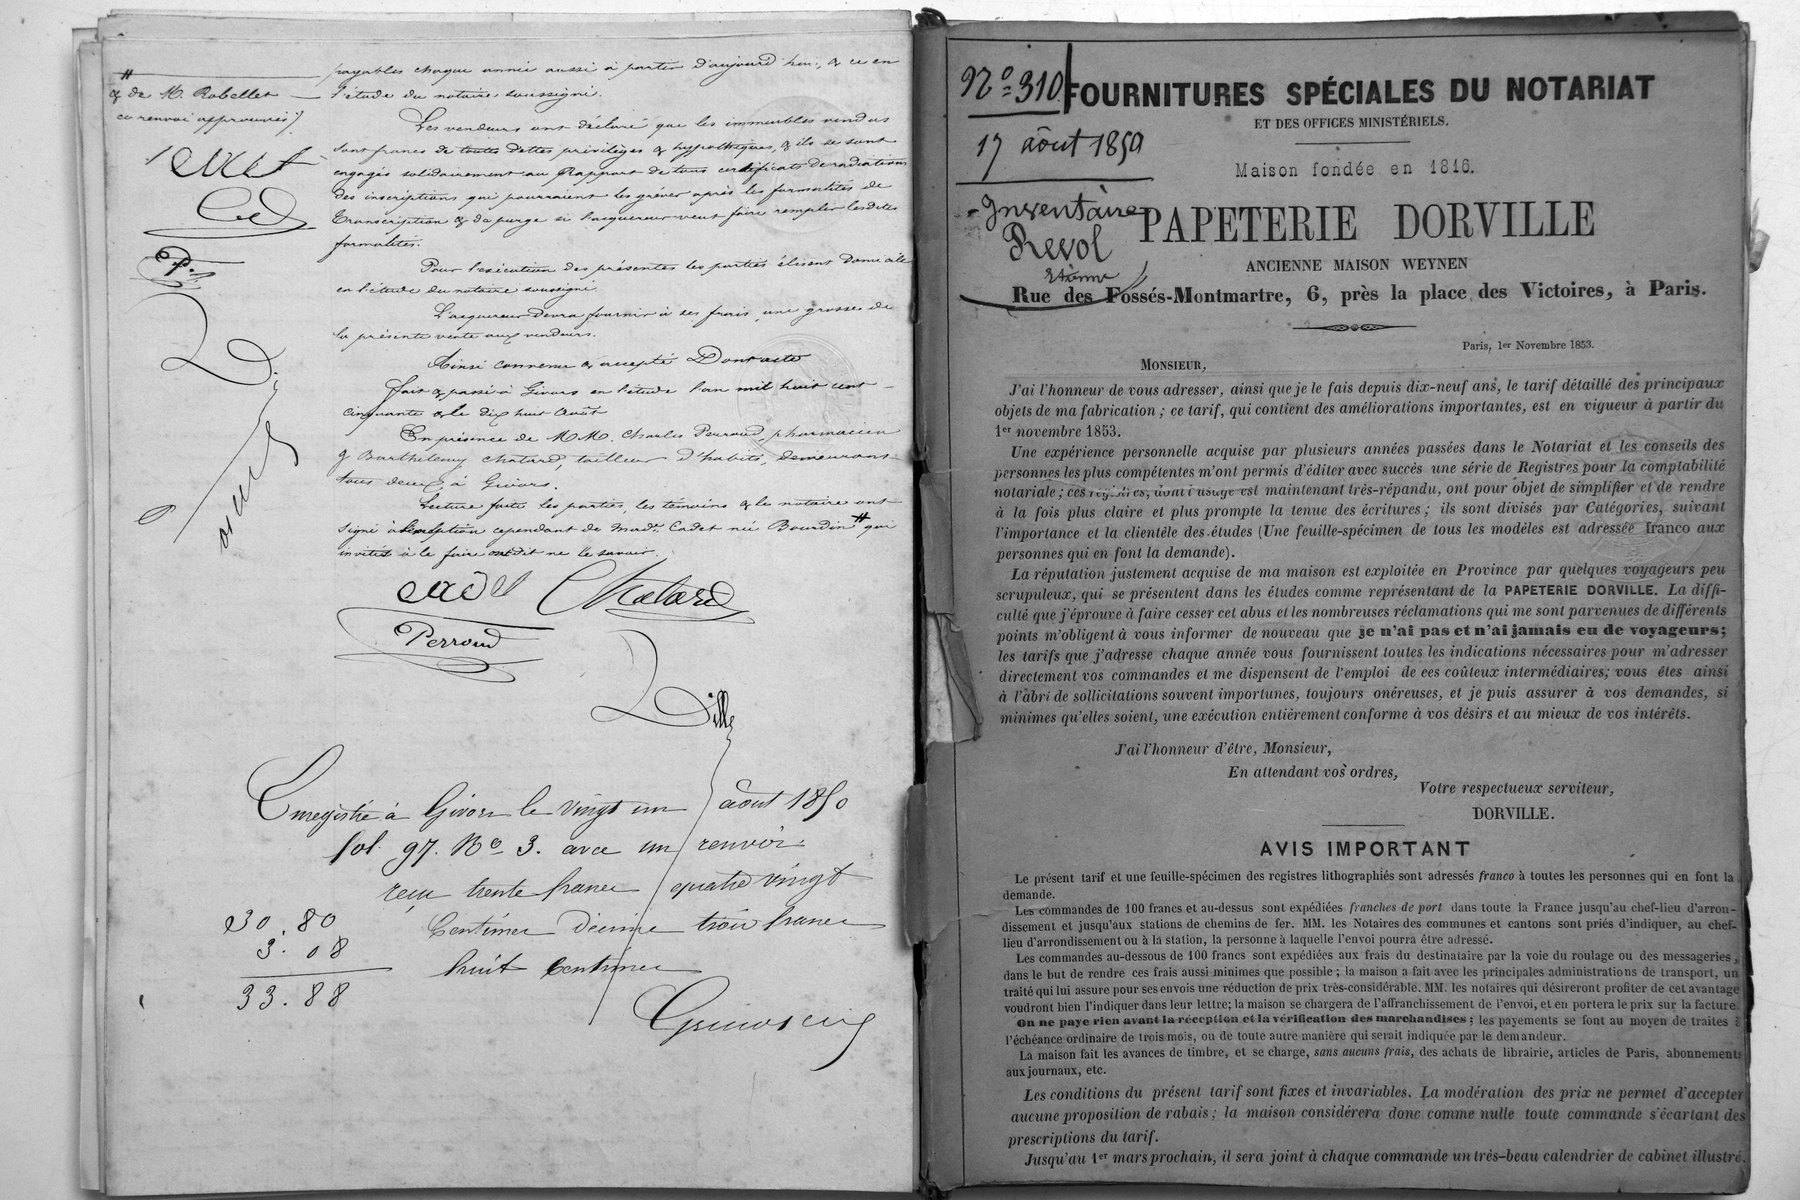 payables chaque année aussi à partir d'aujourd'hui, & ce en
l'étude du notaire soussigné.
Les vendeurs ont déclaré que les immeubles vendus
sont francs de toutes dettes privilèges & hypothèques, & ils se sont
engagés solidairement au Rapport de tous certificats de radiations
des inscriptions qui pourraient les gréver après les formalités de
transcription & de purge si l'acquereur veut faire remplir lesdites
formalités.
Pour l'exécution des présentes les parties élisent domicile
en l'étude du notaire soussigné
L'acquereur devra fournir à ses frais, une grosse de
la présente vente aux vendeurs.
Ainsi convenu & accepté Dont acte
fait & passé à Givors en l'étude l'an mil huit cent
cinquante & le dix huit août
En présence de MM. Charles Perroud, pharmacien
& Barthelemy Chatard, tailleur d'habits, demeurans
tous deux à Givors.
Lecture faite les parties, les témoins & le notaire ont
signé à l'exception cependant de Mad. Cadet née Bourdin # qui
invités à le faire ont dit ne le savoir.
#
& de M. Robellet
ce renvoi approuvé
Cadet Chatard
Perroud
Enregistré à Givors le vingt un août 1850
fol 97. Ro 3. avec un renvoi
reçu trente francs quatre vingt
30.80 Centimes décime trois francs
3.08 huit centimes
33.88
No 310
17 août 1850
Inventaire
Revol
Etienne
FOURNITURES SPÉCIALES DU NOTARIAT
ET DES OFFICES MINISTÉRIELS.
Maison fondée en 1816.
PAPETERIE DORVILLE
ANCIENNE MAISON WEYNEN
Rue des Fossés-Montmartre, 6, près la place des Victoires, à Paris.
Paris, 1er Novembre 1853.
MONSIEUR,
J'ai l'honneur de vous adresser, ainsi que je le fais depuis dix-neuf ans, le tarif détaillé des principaux
objets de ma fabrication ; ce tarif, qui contient des améliorations importantes, est en vigueur à partir du
1er novembre 1853.
Une expérience personnelle acquise par plusieurs années passées dans le Notariat et les conseils des
personnes les plus compétentes m'ont permis d'éditer avec succès une série de Registres pour la comptabilité
notariale ; ces registres, dont l'usage est maintenant très-répandu, ont pour objet de simplifier et de rendre
à la fois plus claire et plus prompte la tenue des écritures ; ils sont divisés par Catégories, suivant
l'importance et la clientèle des études (Une feuille-spécimen de tous les modèles est adressée franco aux
personnes qui en font la demande).
La réputation justement acquise de ma maison est exploitée en Province par quelques voyageurs peu
scrupuleux, qui se présentent dans les études comme représentant de la PAPETERIE DORVILLE. La diffi-
culté que j'éprouve à faire cesser cet abus et les nombreuses réclamations qui me sont parvenues de différents
points m'obligent à vous informer de nouveau que je n'ai pas et n'ai jamais eu de voyageurs;
les tarifs que j'adresse chaque année vous fournissent toutes les indications nécessaires pour m'adresser
directement vos commandes et me dispensent de l'emploi de ces coûteux intermédiaires; vous êtes ainsi
à l'abri de sollicitations souvent importunes, toujours onéreuses, et je puis assurer à vos demandes, si
minimes qu'elles soient, une exécution entièrement conforme à vos désirs et au mieux de vos intérêts.
J'ai l'honneur d'être, Monsieur,
En attendant vos ordres,
Votre respectueux serviteur,
DORVILLE.
AVIS IMPORTANT
Le présent tarif et une feuille-spécimen des registres lithographiés sont adressés franco à toutes les personnes qui en font la
demande.
Les commandes de 100 francs et au-dessus sont expédiées franches de port dans toute la France jusqu'au chef-lieu d'arron-
dissement et jusqu'aux stations de chemins de fer. MM. les Notaires des communes et cantons sont priés d'indiquer, au chef-
lieu d'arrondissement ou à la station, la personne à laquelle l'envoi pourra être adressé.
Les commandes au-dessous de 100 francs sont expédiées aux frais du destinataire par la voie du roulage ou des messageries,
dans le but de rendre ces frais aussi minimes que possible ; la maison a fait avec les principales administrations de transport, un
traité qui lui assure pour ses envois une réduction de prix très-considérable. MM. les notaires qui désireront profiter de cet avantage
voudront bien l'indiquer dans leur lettre; la maison se chargera de l'affranchissement de l'envoi, et en portera le prix sur la facture
On ne paye rien avant la réception et la vérification des marchandises ; les payements se font au moyen de traites
l'échéance ordinaire de trois mois, ou de toute autre manière qui serait indiquée par le demandeur.
La maison fait les avances de timbre, et se charge, sans aucuns frais, des achats de librairie, articles de Paris, abonnements
aux journaux, etc.
Les conditions du présent tarif sont fixes et invariables. La modération des prix ne permet d'accepter
aucune proposition de rabais ; la maison considérera donc comme nulle toute commande s'écartant des
prescriptions du tarif.
Jusqu'au 1er mars prochain, il sera joint à chaque commande un très-beau calendrier de cabinet illustré.